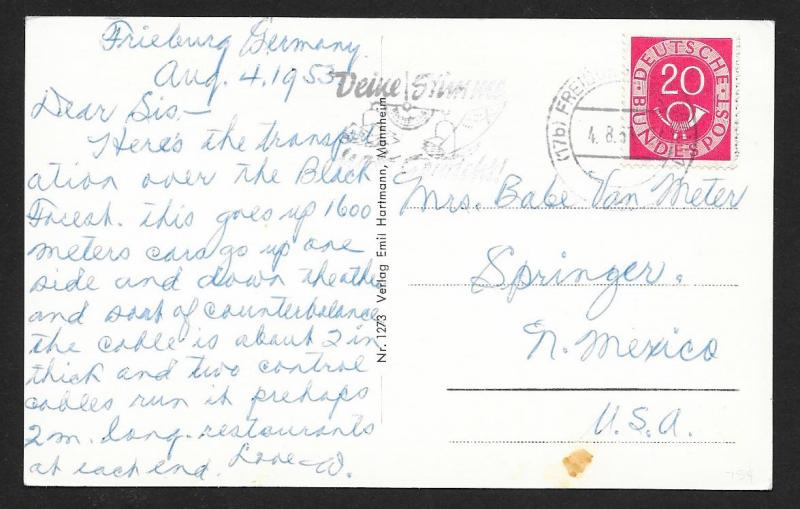 Frieburg Germany.
Aug. 4. 1953
Dear Sis.—
Here's the transport
ation over the Black
Forest. this goes up 1600
meters cars go up one
side and down the other
and sort of counterbalance
the cable is about 2 in
thick and two control
cables run it prehaps
2 m. long. restaurants
at each end. Love W.
Nr. 1273 Verlag Emil Hartmann, Mannheim
Deine Stimme
(17b) FREIBURG
4.8.5
DEUTSCHE
20
BUNDESPOST
Mrs. Babe Van Meter
Springer.
N. Mexico
U.S.A.
754